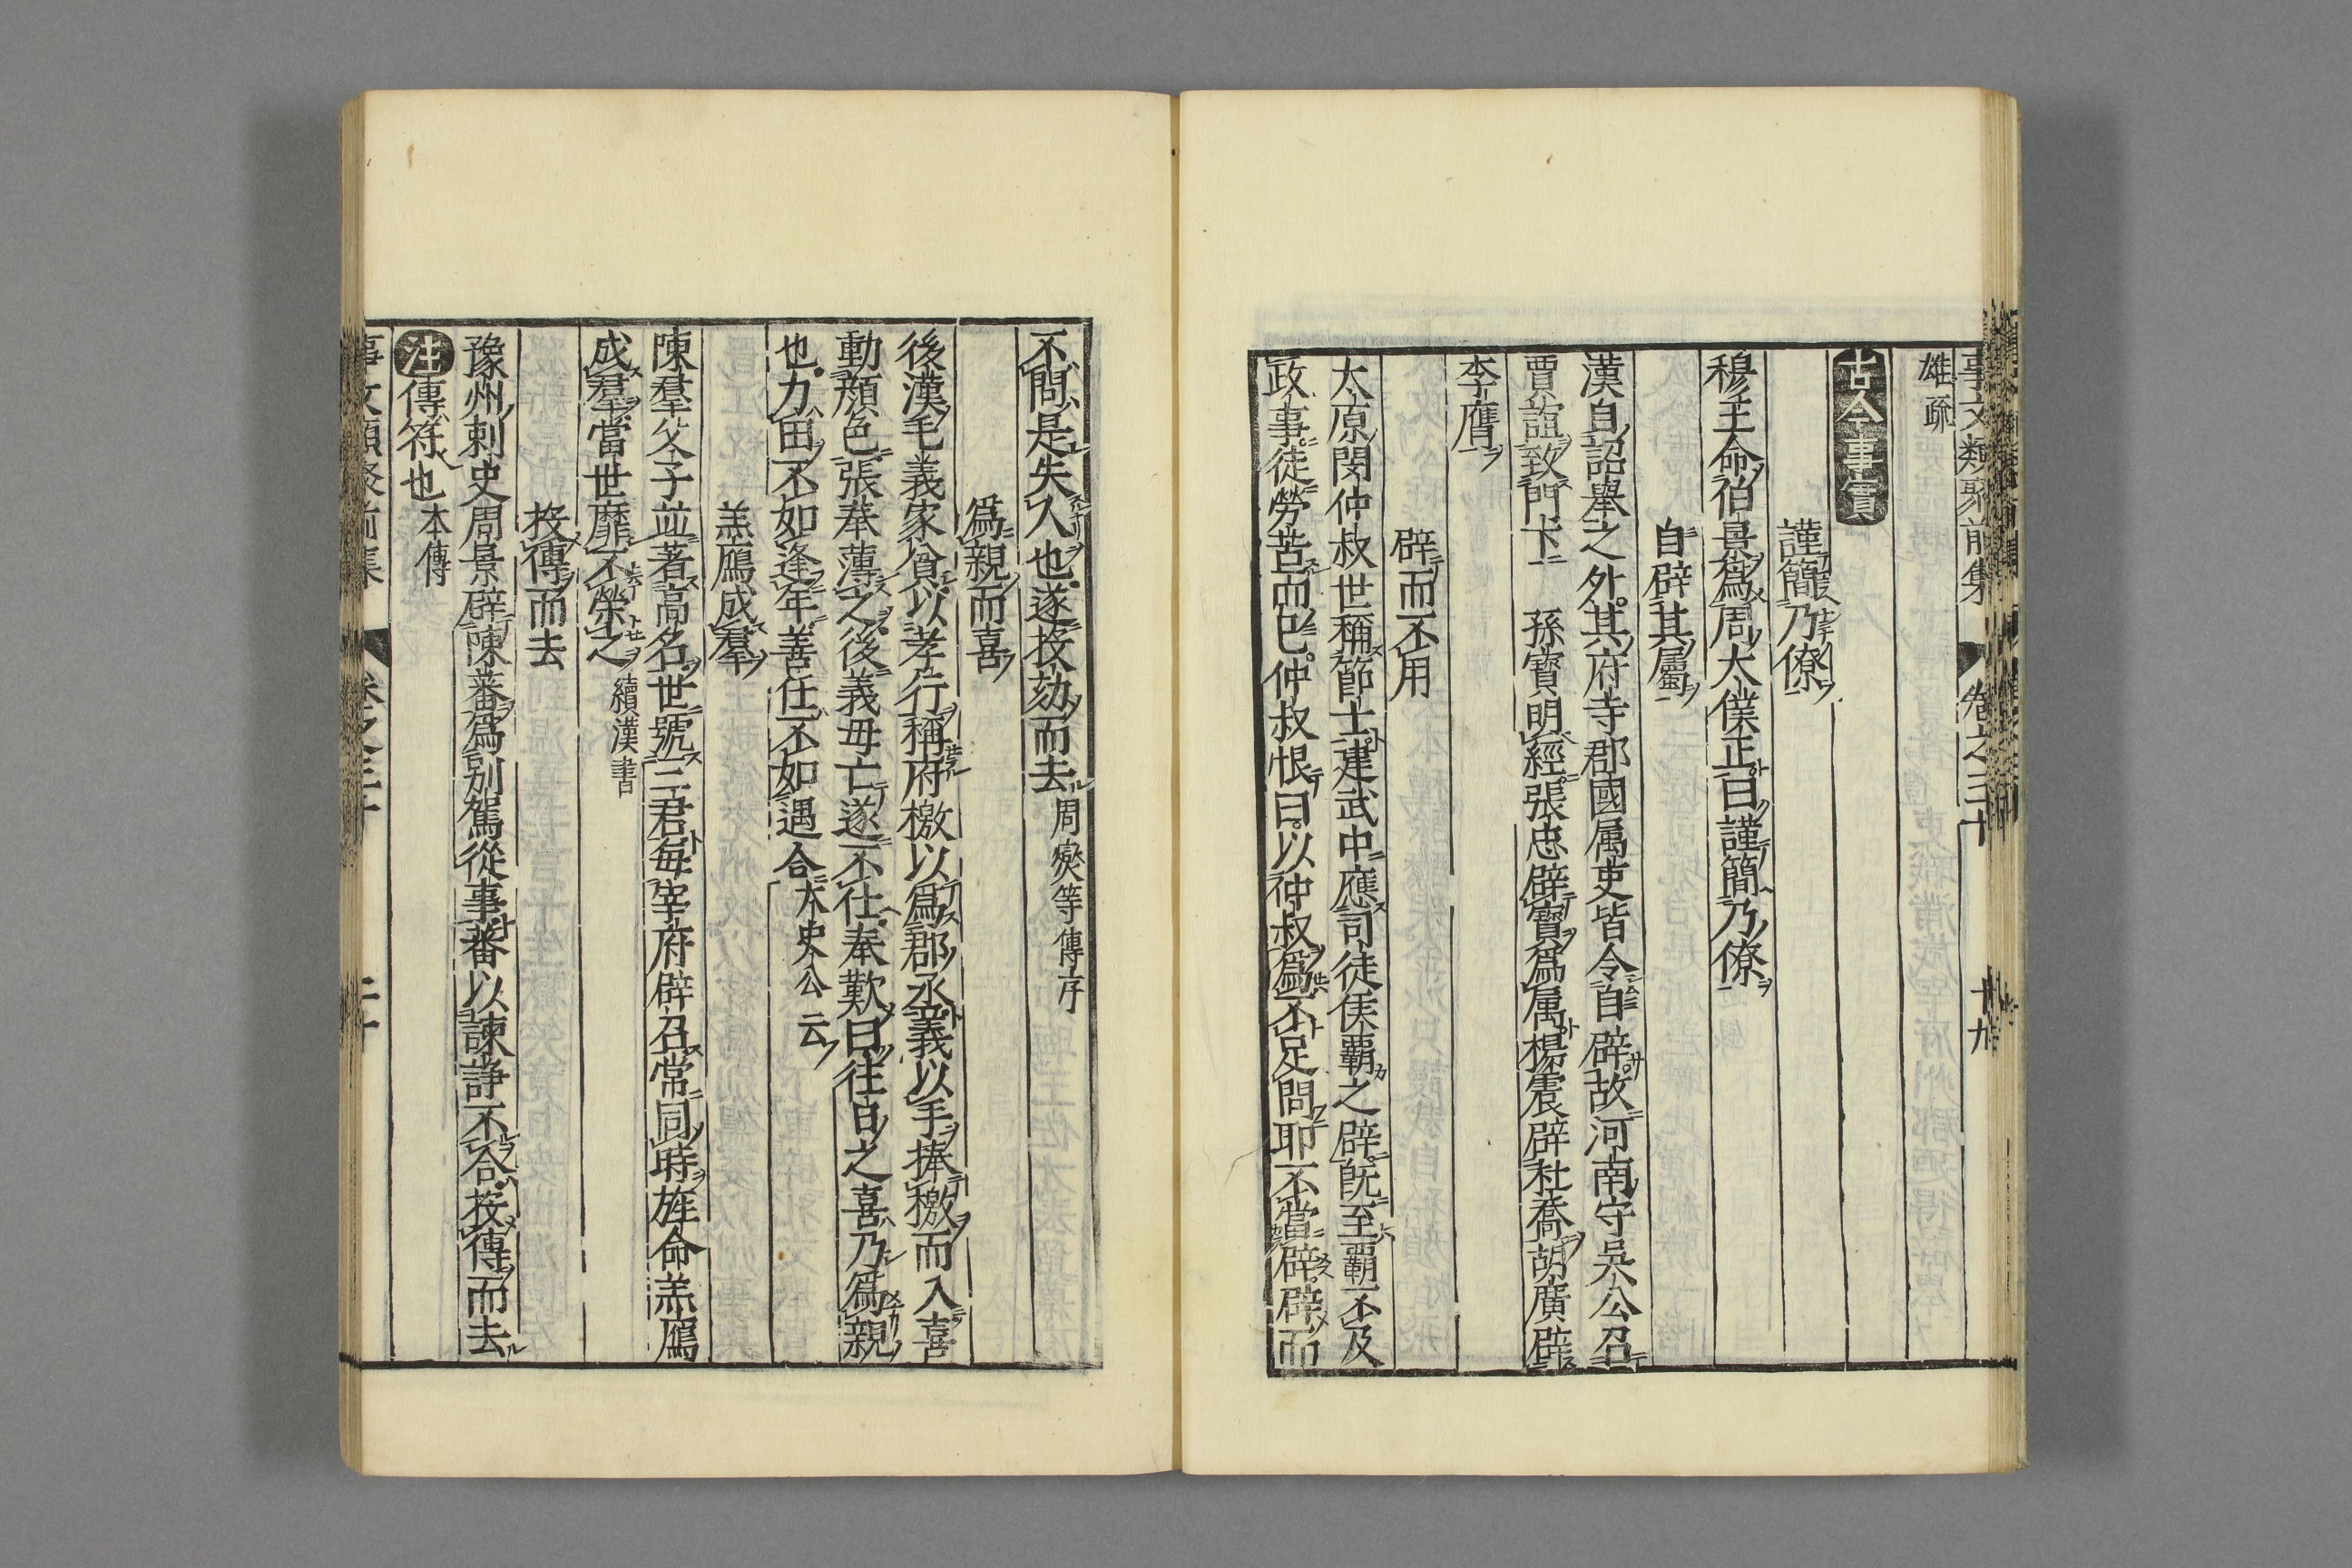 事文類聚前集 卷之三十 十九
雄疏
古今事實
謹簡乃僚
穆王命伯景爲周太僕正曰謹簡乃僚
自辟其屬
漢自詔舉之外其府寺郡國属吏皆令自辟故河南守吳公召
賈誼致門下 孫寶明經張忠辟寶爲属楊震辟杜喬胡廣辟
李膺
辟而不用
太原閔仲叔世稱節士建武中應司徒侯覇之辟既至覇不及
政事徒勞苦而已仲叔恨曰以仲叔爲不足問耶不當辟辟而
不問是失人也遂投劾而去周燮等傳序
爲親而喜
後漢毛義家貧以孝行稱府檄以爲郡丞義以手捧檄而入喜
動顔色張奉薄之後義母亡遂不仕奉歎曰往日之喜乃爲親
也力田不如逢年善仕不如遇合太史公云
羔鴈成羣
陳羣父子並著高名世號三君每宰府辟召常同時旌命羔鴈
成羣當世靡不榮之續漢書
投傳而去
豫州刺史周景辟陳蕃爲別駕從事蕃以諫諍不合投傳而去
注傳符也本傳
事文類聚前集 卷之三十 二十